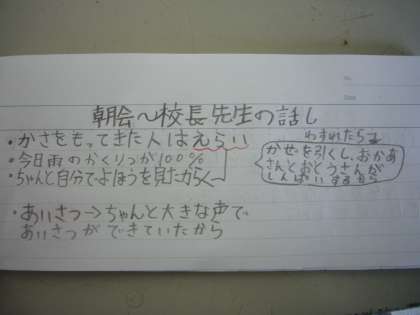 朝会〜校長先生の話し
・かさをもってきた人はえらい
・今日雨のかくりつが100%
・ちゃんと自分でよほうを見たから
わすれたら
かぜを引くし、おかあ
さんとおとうさんが
しんぱいするから
・あいさつ→ちゃんと大きな声で
あいさつができていたから